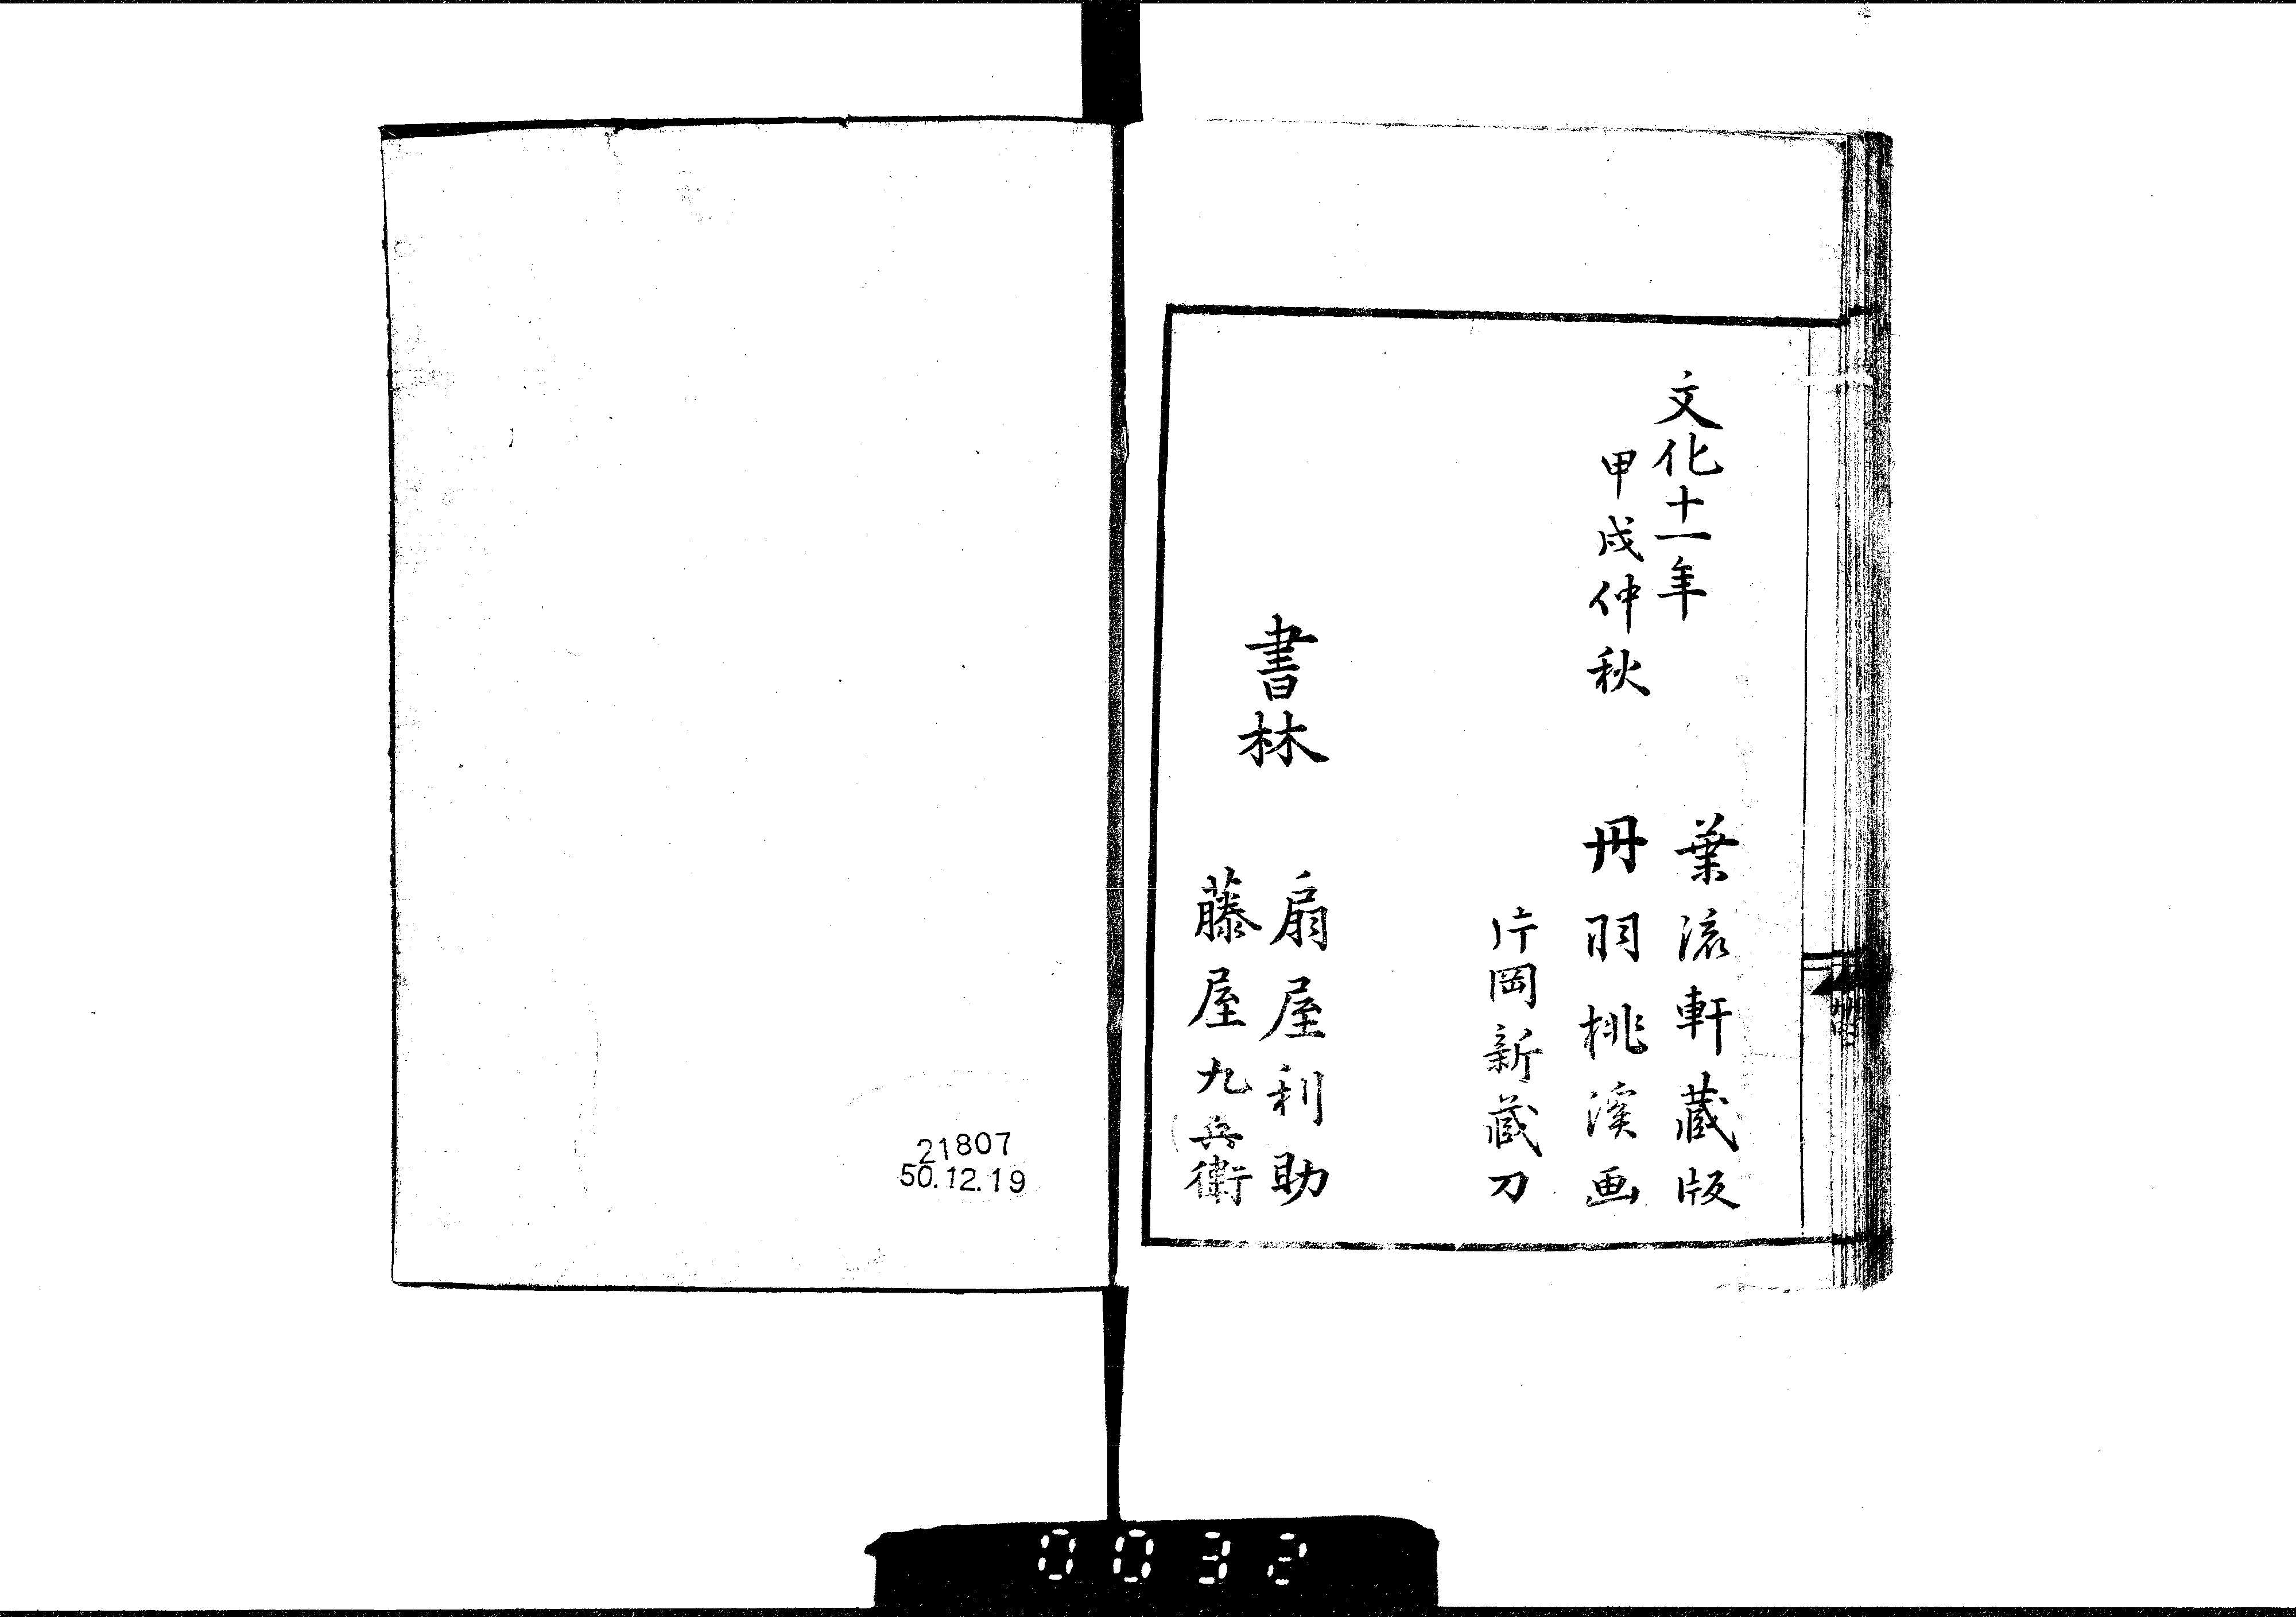 文化十一年
甲戌仲秋
葉流軒蔵版
丹羽桃溪画
片岡新蔵刀
書林
扇屋利助
藤屋九兵衛
21807
50.12.19
0032